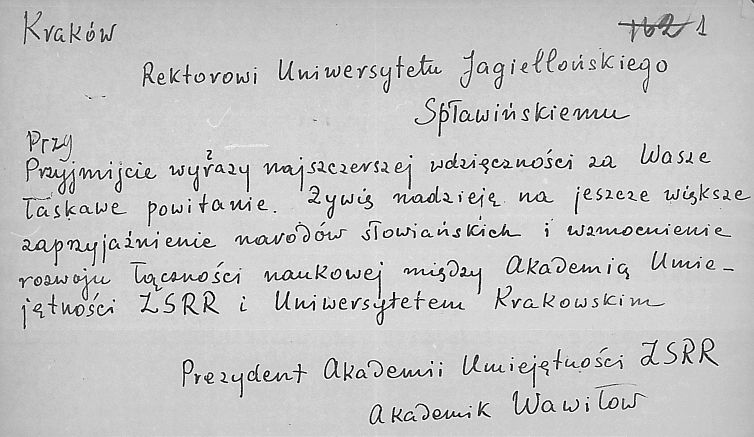 Kraków
1
Rektorowi Uniwersytetu Jagiellońskiego
Spławińskiemu
Przy
Przyjmijcie wyrazy najszczerszej wdzięczności za Wasze
łaskawe powitanie. Żywię nadzieję na jeszcze większe
zaprzyjaźnienie narodów słowiańskich i wzmocnienie
rozwoju łączności naukowej między Akademią Umie-
jętności ZSRR i Uniwersytetem Krakowskim
Prezydent Akademii Umiejętności ZSRR
Akademik Wawiłow